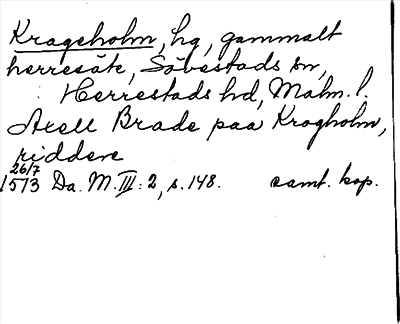 Krageholm, hg, gammalt
herresäte, Sövestads sn,
Herrestads hd, Malm. l.
Axell Brade paa Krogholm,
riddere
26/7
1573 Da. M. III: 2, s. 148. samt. kop.